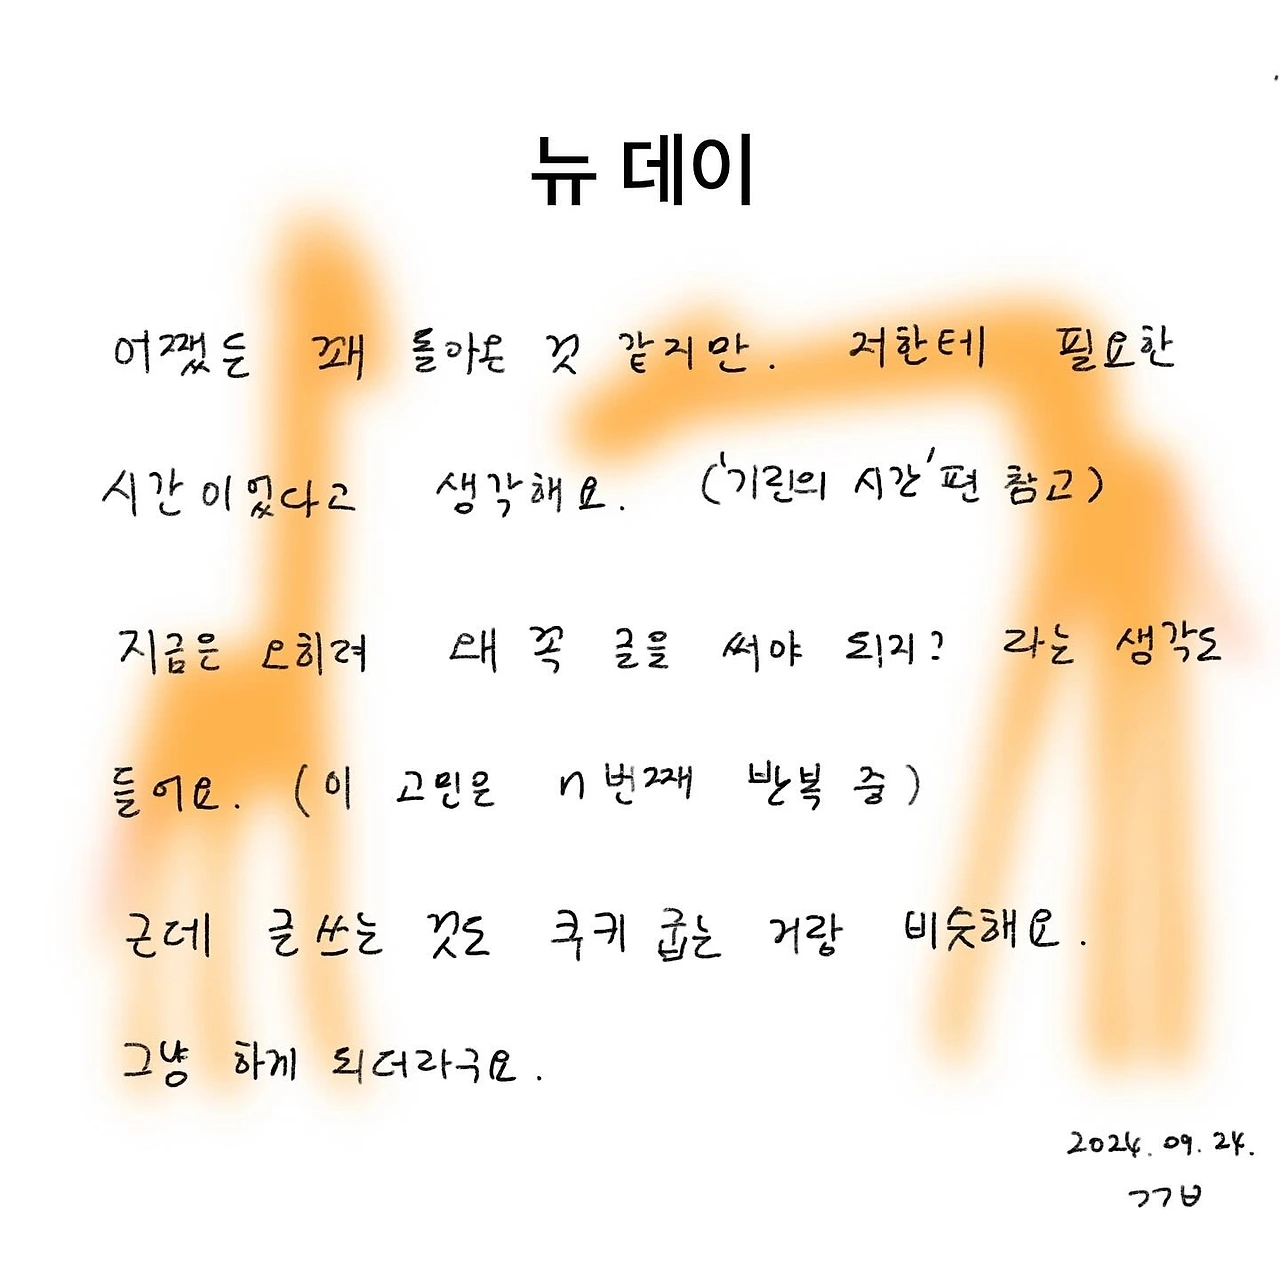 뉴 데이
어쨌든 꽤 돌아온 것 같지만. 저한테 필요한
시간이었다고 생각해요. ('기린의 시간'편 참고)
지금은 오히려 왜 꼭 글을 써야 되지? 라는 생각도
들어요. (이 고민은 n번째 반복 중)
근데 글쓰는 것도 쿠키 굽는 거랑 비슷해요.
그냥 하게 되더라구요.
2024.09.24.
ㄱㄱㅂ